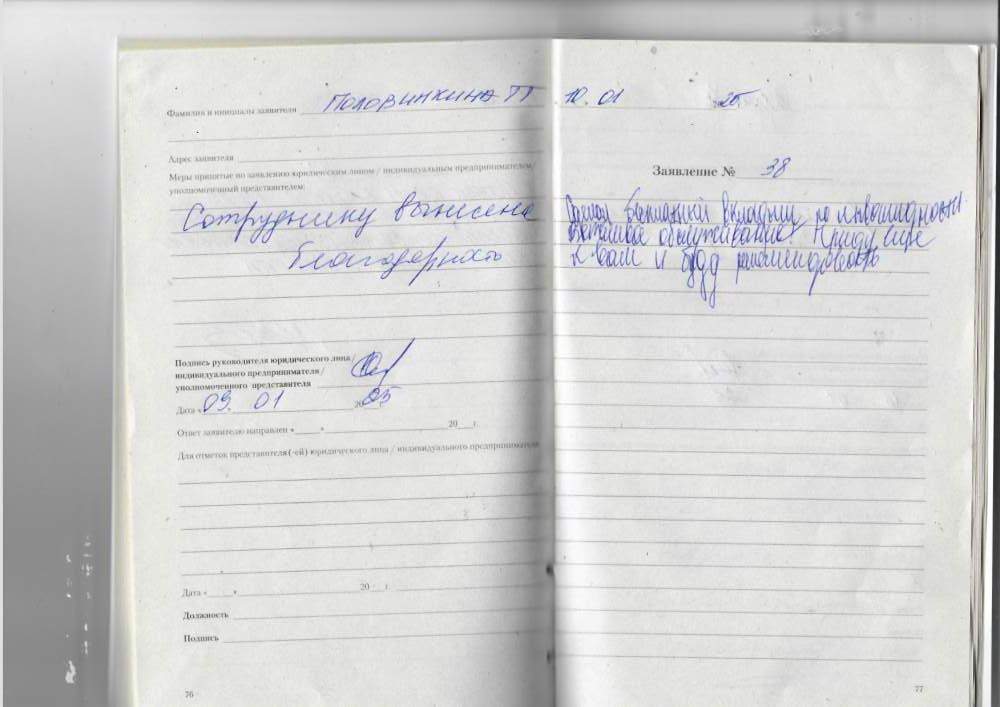 Фамилия и инициалы заявителя Половинкина ТГ
Адрес заявителя
Меры принятые по заявлению юридическим лицом / индивидуальным предпринимателем/
уполномоченный представителем:
Сотруднику вынесена
благодарность
Подпись руководителя юридического лица/
индивидуального предпринимателя/
уполномоченного представителя
Дата « 09. 01 20 25
Ответ заявителю направлен « » 20 г.
Для отметок представителя (-ей) юридического лица / индивидуального предпринимателя
Дата « » 20 г.
Должность
Подпись
76
10. 01 2025
Заявление № 38
вкладыш по инвалидности
обслуживание! Приду еще
к вам и буду рекомендовать
77